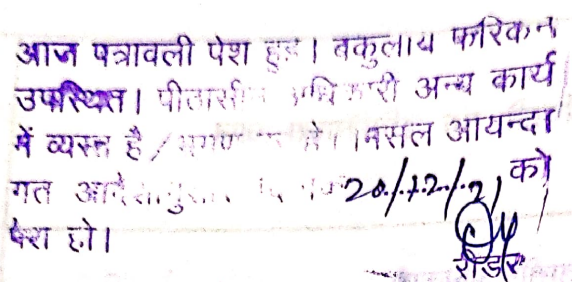 आज पत्रावली पेश हुई। वकुलाय फरिकेन
उपस्थित। पीठासीन अधिकारी अन्य कार्य
में व्यस्त है / पर है। मिसल आयन्दा
गत आदेशानुसार 20/12/21 को
पेश हो।
रीडर